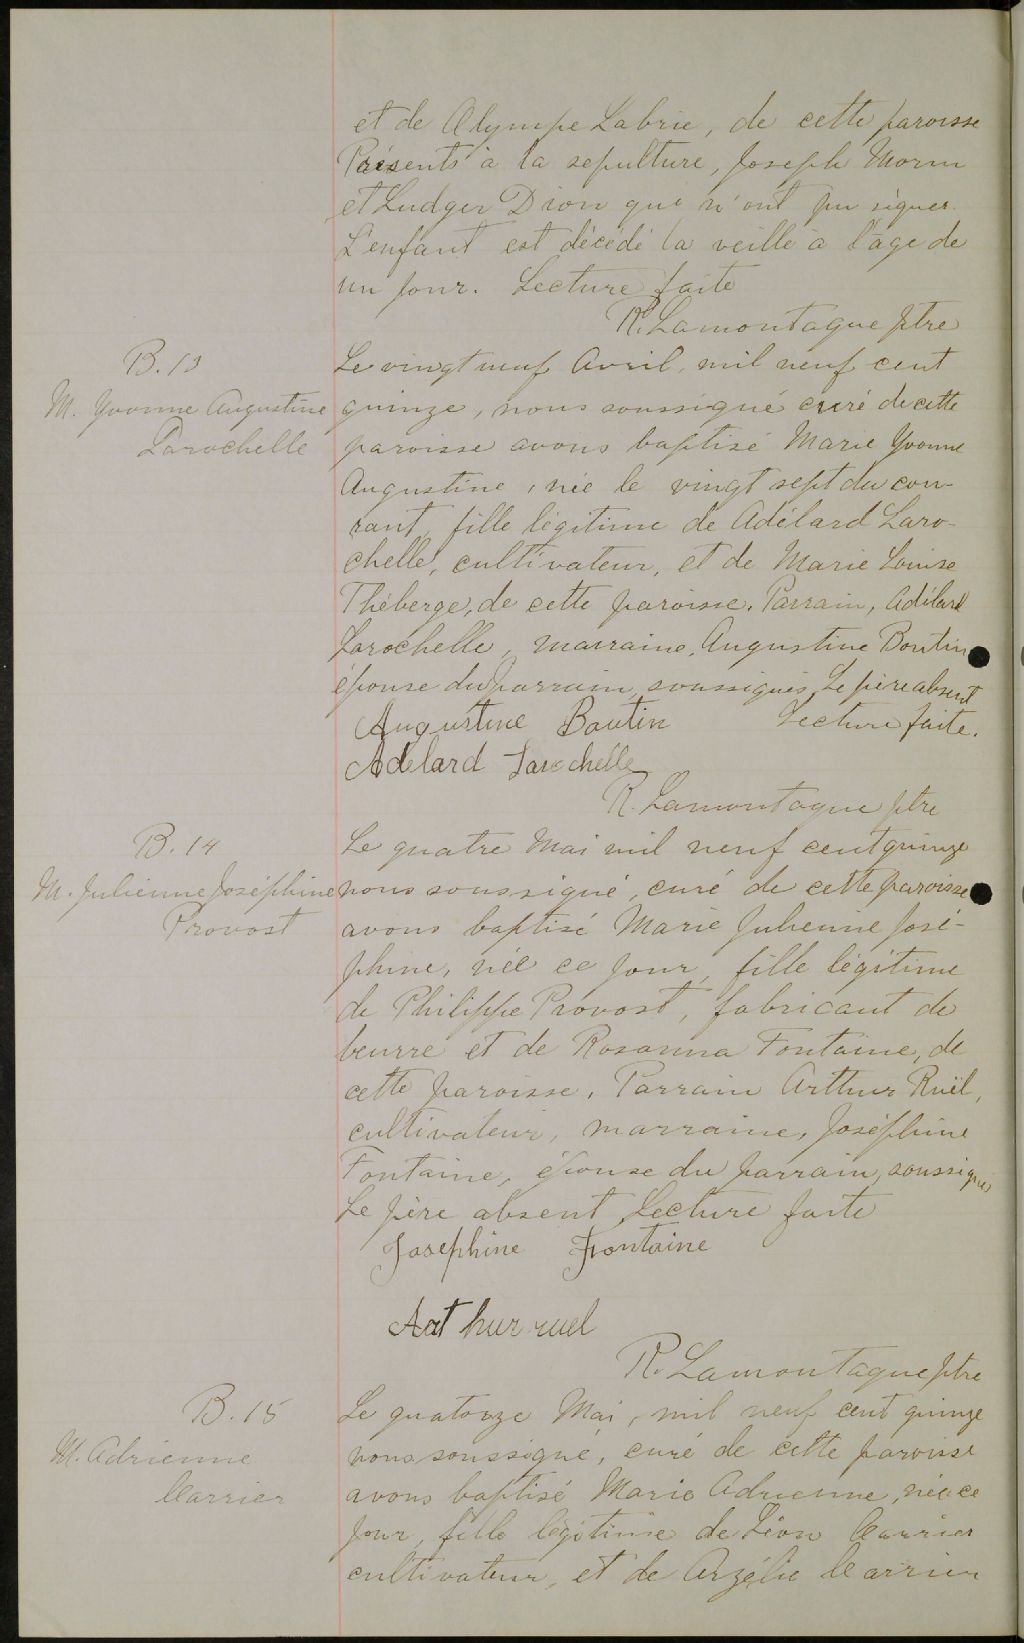 et de Olympe Labrie, de cette paroisse
Présents à la sepulture, Joseph Morin
et Ludger Dion qui n'ont pu signer.
L'enfant est décédé la veille à l'âge de
un jour. Lecture faite
R. Lamontagne ptre
B. 13
M. Yvonne Augustine
Larochelle
Le vingt neuf Avril, mil neuf cent
quinze, nous soussigné curé de cette
paroisse avons baptisé Marie Yvonne
Augustine, née le vingt sept du cou-
rant, fille légitime de Adélard Laro-
chelle, cultivateur, et de Marie Louise
Théberge, de cette paroisse. Parrain, Adélard
Larochelle, marraine, Augustine Boutin
épouse du parrain, soussignés. Le père absent
Lecture faite.
Augustine Boutin
Adelard Larochelle
R. Lamontagne ptre
B. 14
M. Julienne Joséphine
Provost
Le quatre Mai mil neuf cent quinze
nous soussigné, curé de cette paroisse
avons baptisé Marie Julienne José-
phine, née ce jour, fille légitime
de Philippe Provost, fabricant de
beurre et de Rosanna Fontaine, de
cette paroisse. Parrain Arthur Ruël,
cultivateur, marraine, Joséphine
Fontaine, épouse du parrain, soussignés
Le père absent Lecture faite
Josephine Fontaine
Arthur ruel
R. Lamontagne ptre
B. 15
M. Adrienne
Carrier
Le quatorze Mai, mil neuf cent quinze
nous soussigné, curé de cette paroisse
avons baptisé Marie Adrienne, née ce
jour, fille légitime de Léon Carrier
cultivateur, et de Arzélie Carrier